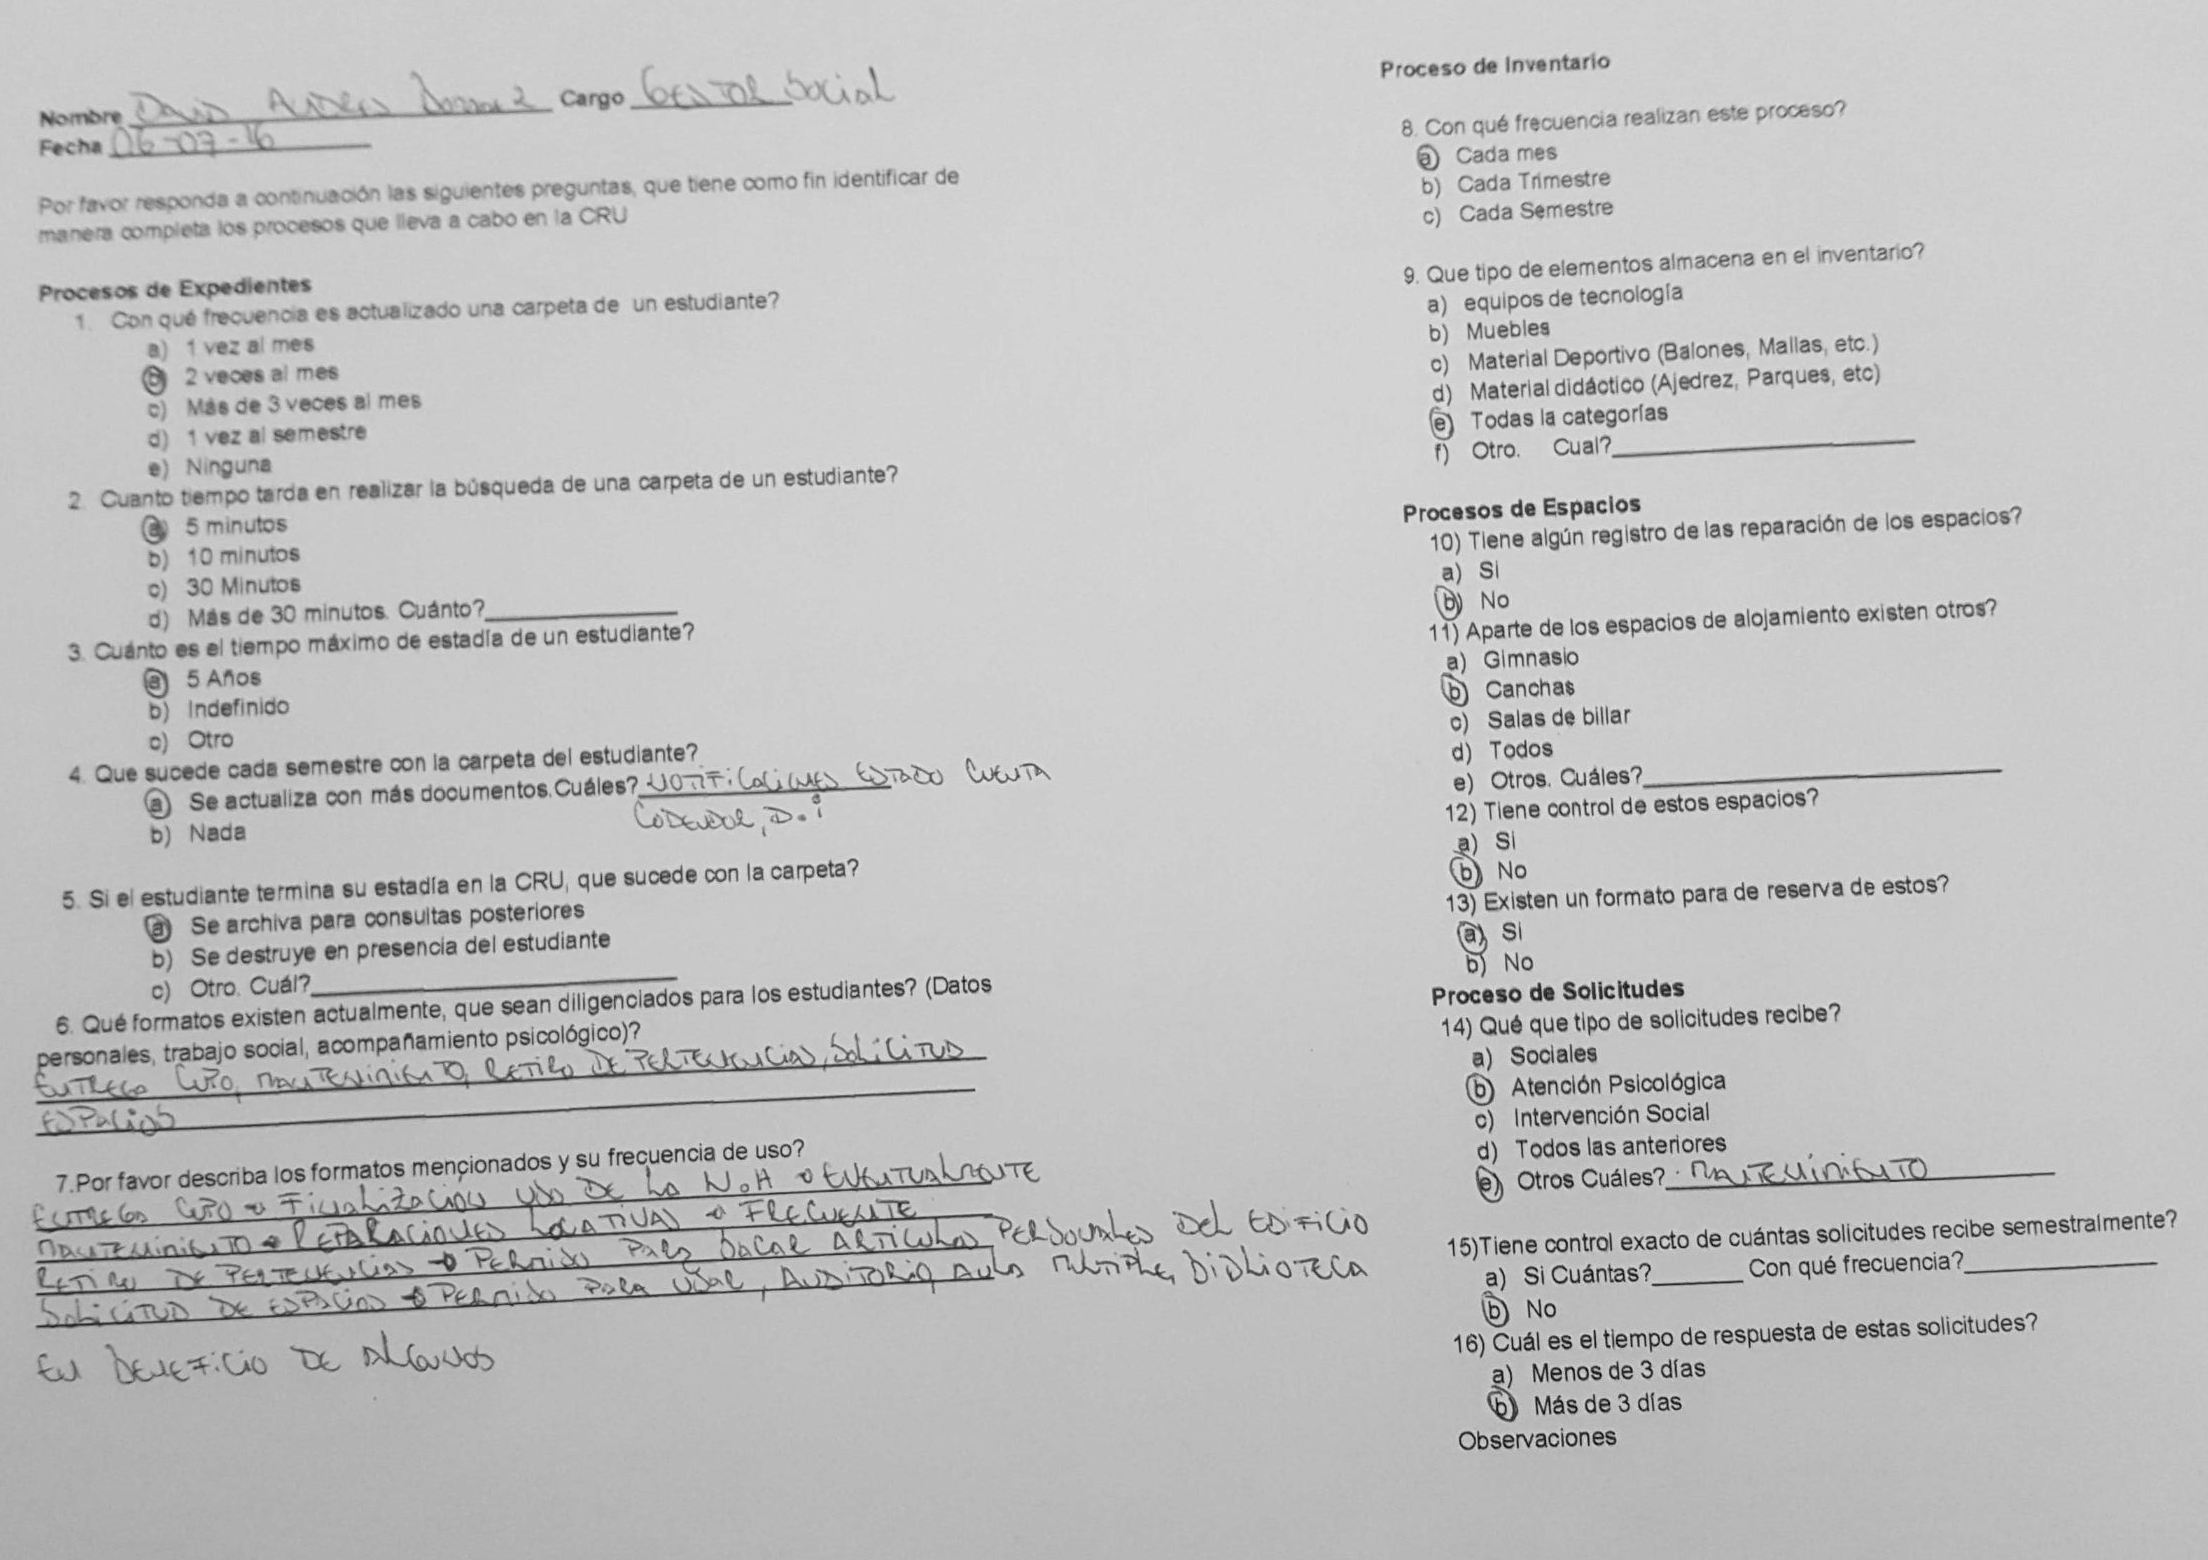 Nombre David Andres Cargo Gestor Social
Fecha 06-07-16
Por favor responda a continuación las siguientes preguntas, que tiene como fin identificar de
manera completa los procesos que lleva a cabo en la CRU
Procesos de Expedientes
1. Con qué frecuencia es actualizado una carpeta de un estudiante?
a) 1 vez al mes
b) 2 veces al mes
c) Más de 3 veces al mes
d) 1 vez al semestre
e) Ninguna
2. Cuanto tiempo tarda en realizar la búsqueda de una carpeta de un estudiante?
a) 5 minutos
b) 10 minutos
c) 30 Minutos
d) Más de 30 minutos. Cuánto?
3. Cuánto es el tiempo máximo de estadía de un estudiante?
a) 5 Años
b) Indefinido
c) Otro
4. Que sucede cada semestre con la carpeta del estudiante?
a) Se actualiza con más documentos.Cuáles? NOTIFICACIONES ESTADO CUENTA
CODEUDOR, D.i
b) Nada
5. Si el estudiante termina su estadía en la CRU, que sucede con la carpeta?
a) Se archiva para consultas posteriores
b) Se destruye en presencia del estudiante
c) Otro. Cuál?
6. Qué formatos existen actualmente, que sean diligenciados para los estudiantes? (Datos
personales, trabajo social, acompañamiento psicológico)?
ENTREGA CUPO, MANTENIMIENTO, RETIRO DE PERTENENCIAS, SOLICITUD
ESPACIOS
7.Por favor describa los formatos mencionados y su frecuencia de uso?
ENTREGA CUPO → FINALIZACION USO DE LA N.H → EVENTUALMENTE
MANTENIMIENTO → REPARACIONES LOCATIVAS → FRECUENTE
RETIRO DE PERTENENCIAS → PERMISO PARA SACAR ARTICULOS PERSONALES DEL EDIFICIO
SOLICITUD DE ESPACIOS → PERMISO PARA USAR, AUDITORIO, AULA MULTIPLE, BIBLIOTECA
EN BENEFICIO DE ALGUNOS
Proceso de Inventario
8. Con qué frecuencia realizan este proceso?
a) Cada mes
b) Cada Trimestre
c) Cada Semestre
9. Que tipo de elementos almacena en el inventario?
a) equipos de tecnología
b) Muebles
c) Material Deportivo (Balones, Mallas, etc.)
d) Material didáctico (Ajedrez, Parques, etc)
e) Todas la categorías
f) Otro. Cual?
Procesos de Espacios
10) Tiene algún registro de las reparación de los espacios?
a) Si
b) No
11) Aparte de los espacios de alojamiento existen otros?
a) Gimnasio
b) Canchas
c) Salas de billar
d) Todos
e) Otros. Cuáles?
12) Tiene control de estos espacios?
a) Si
b) No
13) Existen un formato para de reserva de estos?
a) Si
b) No
Proceso de Solicitudes
14) Qué que tipo de solicitudes recibe?
a) Sociales
b) Atención Psicológica
c) Intervención Social
d) Todos las anteriores
e) Otros Cuáles? MANTENIMIENTO
15)Tiene control exacto de cuántas solicitudes recibe semestralmente?
a) Si Cuántas? Con qué frecuencia?
b) No
16) Cuál es el tiempo de respuesta de estas solicitudes?
a) Menos de 3 días
b) Más de 3 días
Observaciones